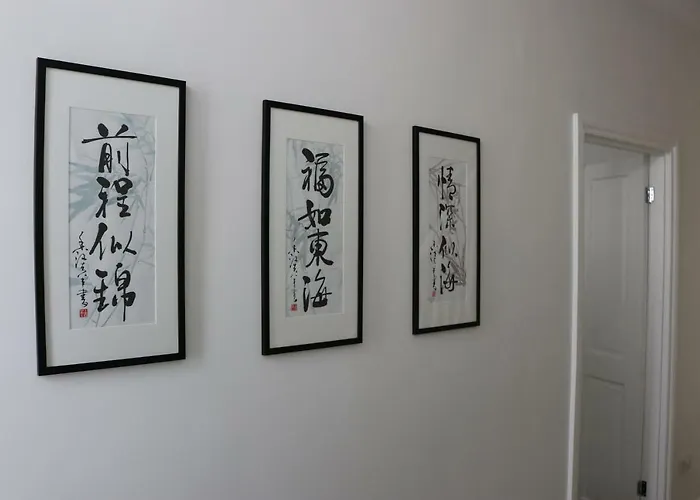 前程似锦
福如東海
情深似海